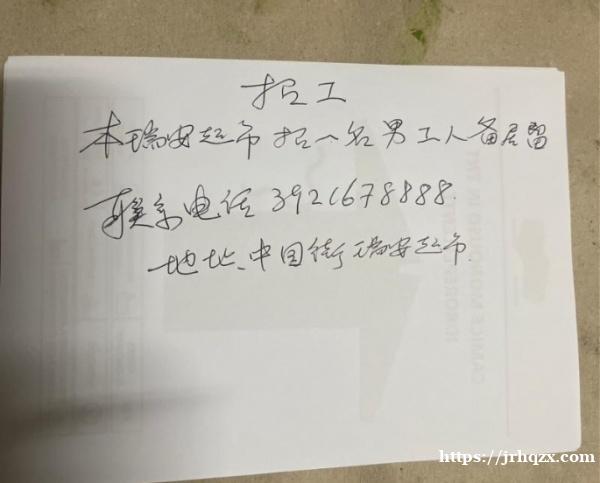 招工
本瑞安超市招一名男工人备居留
联系电话 3921678888.
地址、中国街瑞安超市.
https://jrhqzx.com